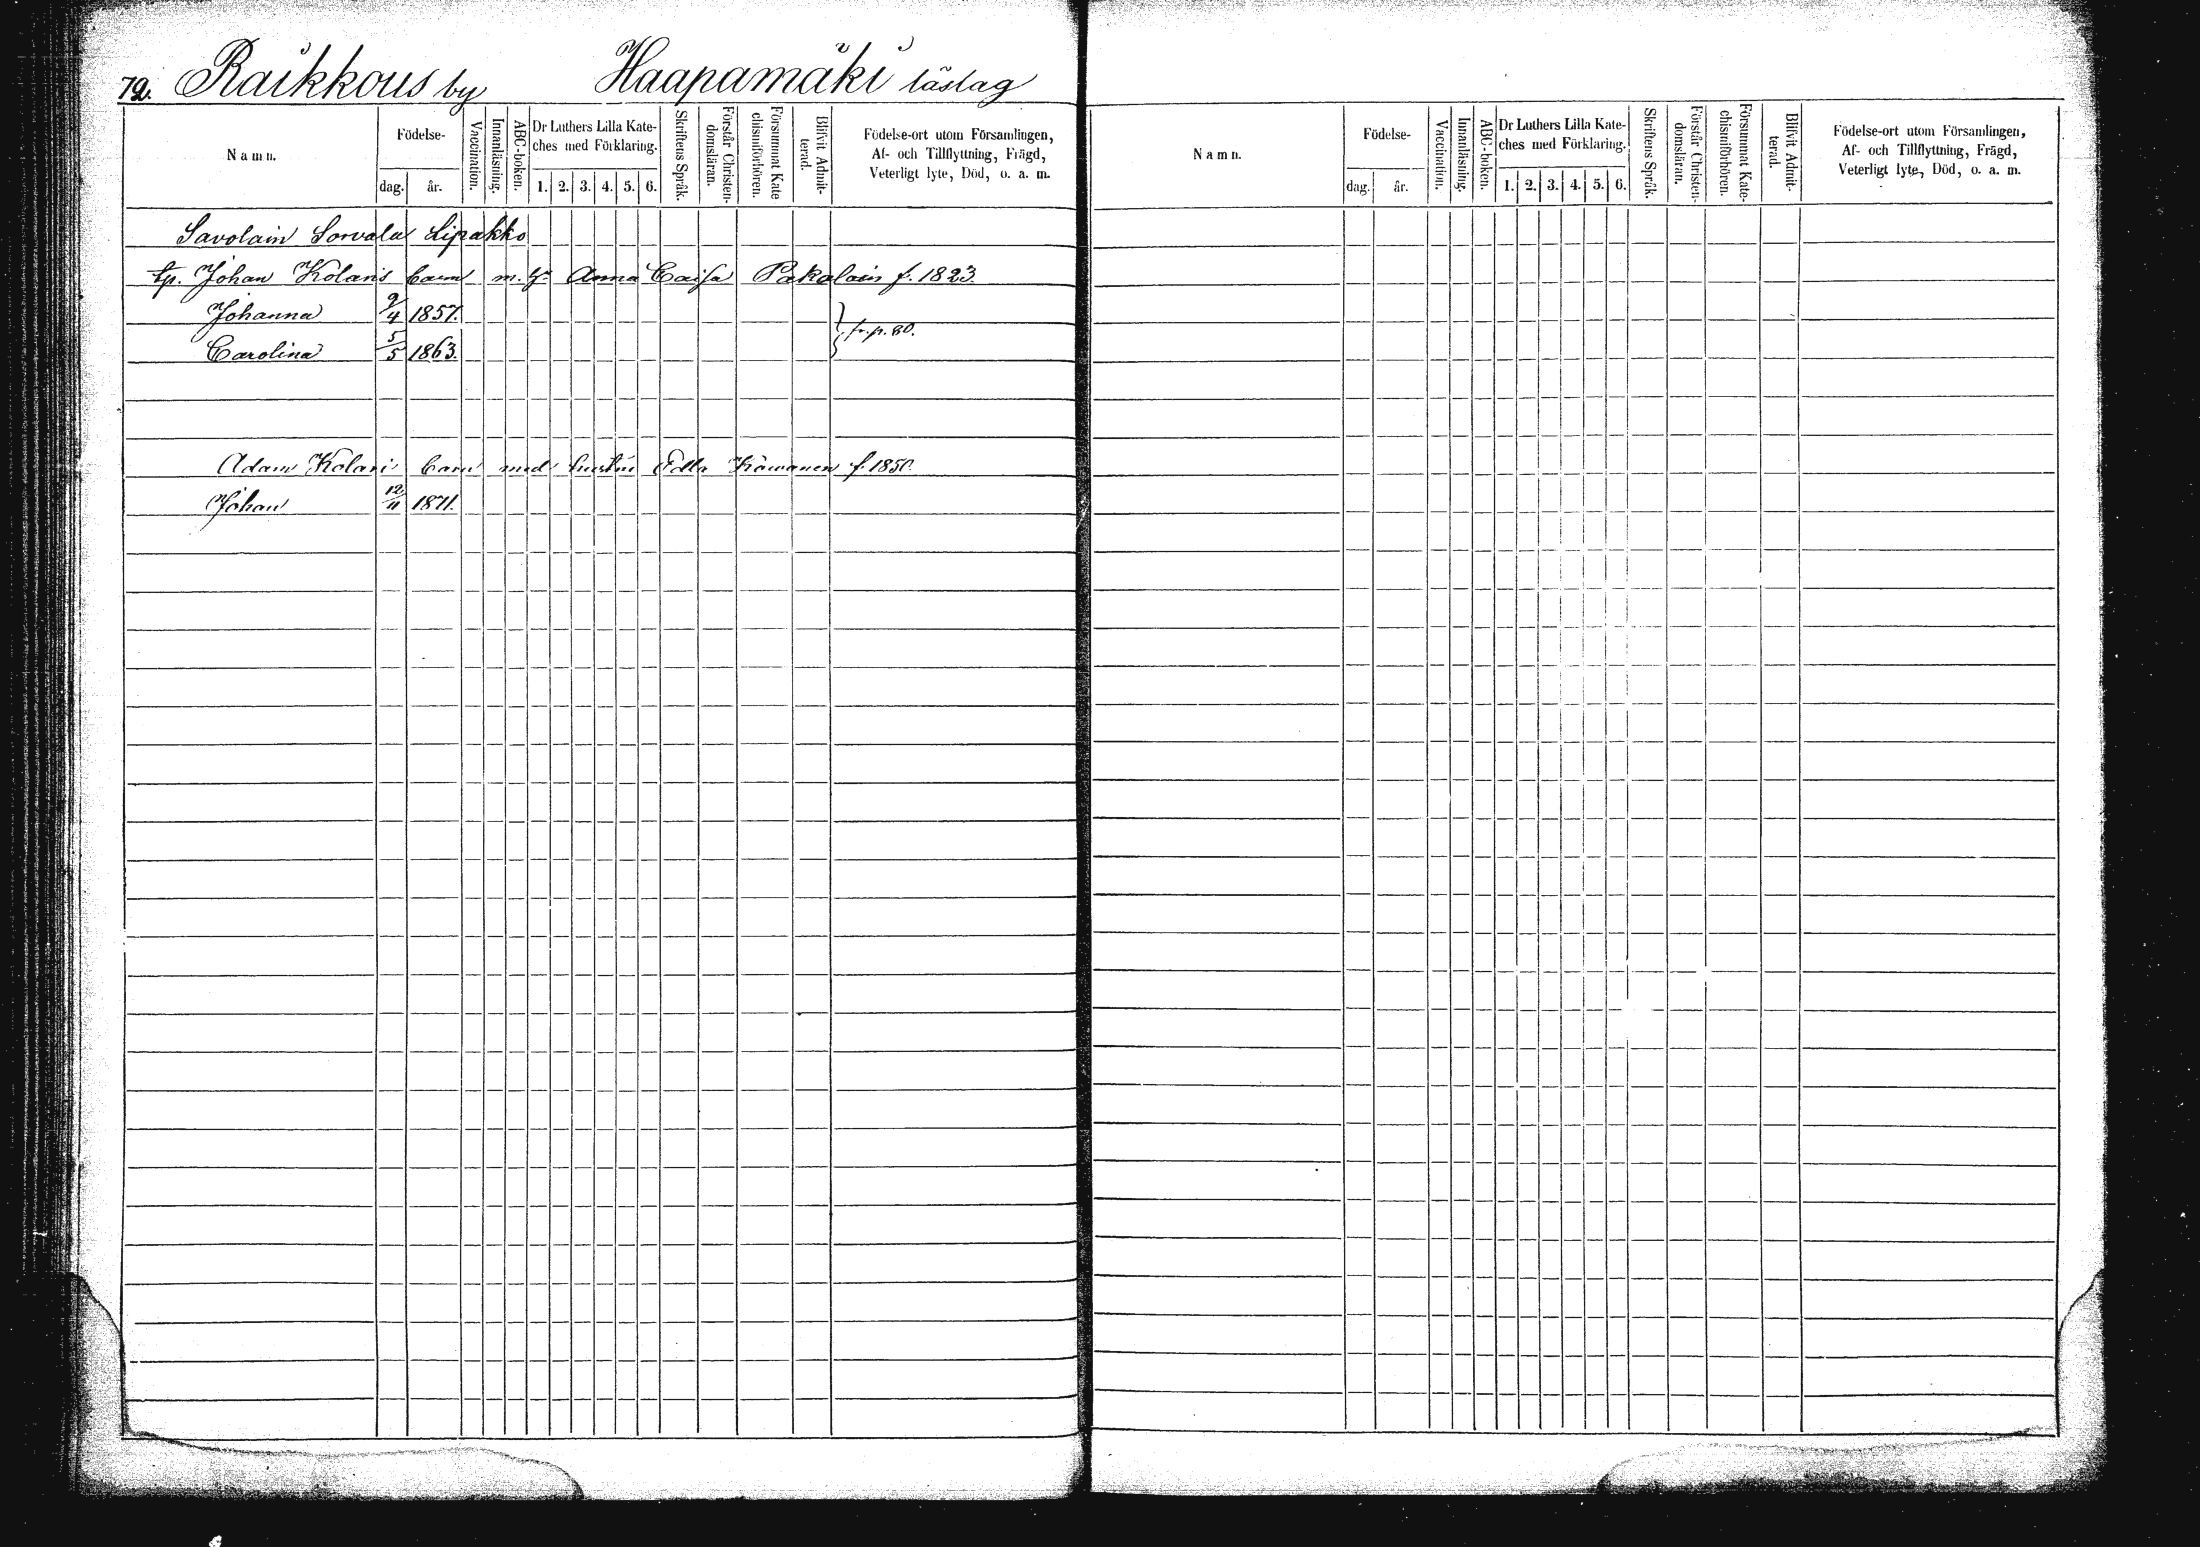 72. Raikkous by Haapamäki läslag
Namn. Födelse- dag. år. Vaccination. Innanläsning. ABC-boken. Dr Luthers Lilla Kate-ches med Förklaring. 1. 2. 3. 4. 5. 6. Skriftens Språk. Förstår Christen-domsläran. Försummat Kate chismiförhören. Blifvit Admit-terad. Födelse-ort utom Församlingen, Af- och Tillflyttning, Frägd, Veterligt lyte, Död, o. a. m.
Savolain Sorvala Lipakko
tp. Johan Kolaris barn m. h. Anna Caisa Pakalain f. 1823.
Johanna 9/4 1857.
fr. p. 80.
Carolina 5/5 1863.
Adam Kolari barn med hustru Edla f. 1850.
Johan 12/11 1871.
Namn. Födelse- dag. år. Vaccination. Innanläsning. ABC-boken. Dr Luthers Lilla Kate-ches med Förklaring. 1. 2. 3. 4. 5. 6. Skriftens Språk. Förstår Christen-domsläran. Försummat Kate-chismiförhören. Blifvit Admit-terad. Födelse-ort utom Församlingen, Af- och Tillflyttning, Frägd, Veterligt lyte, Död, o. a. m.